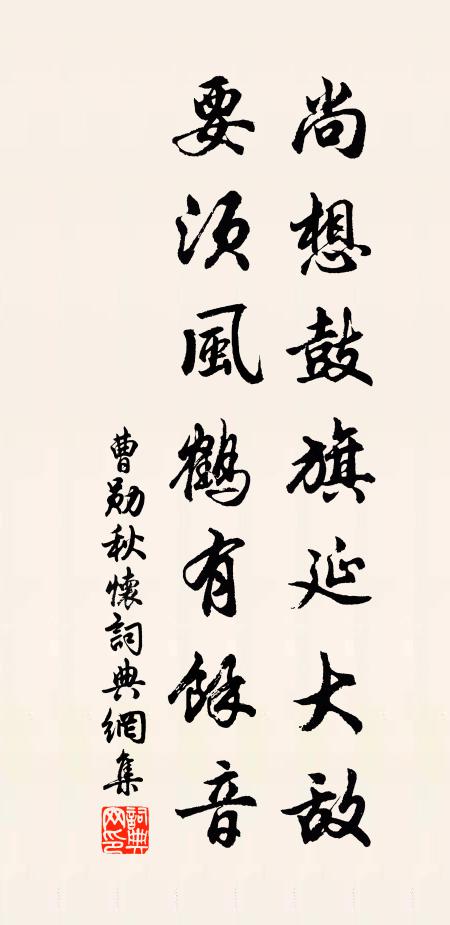 尚想鼓旗延大敌
要须風鶴有餘音
曹勛秋懷詞典網集
詞典
网印